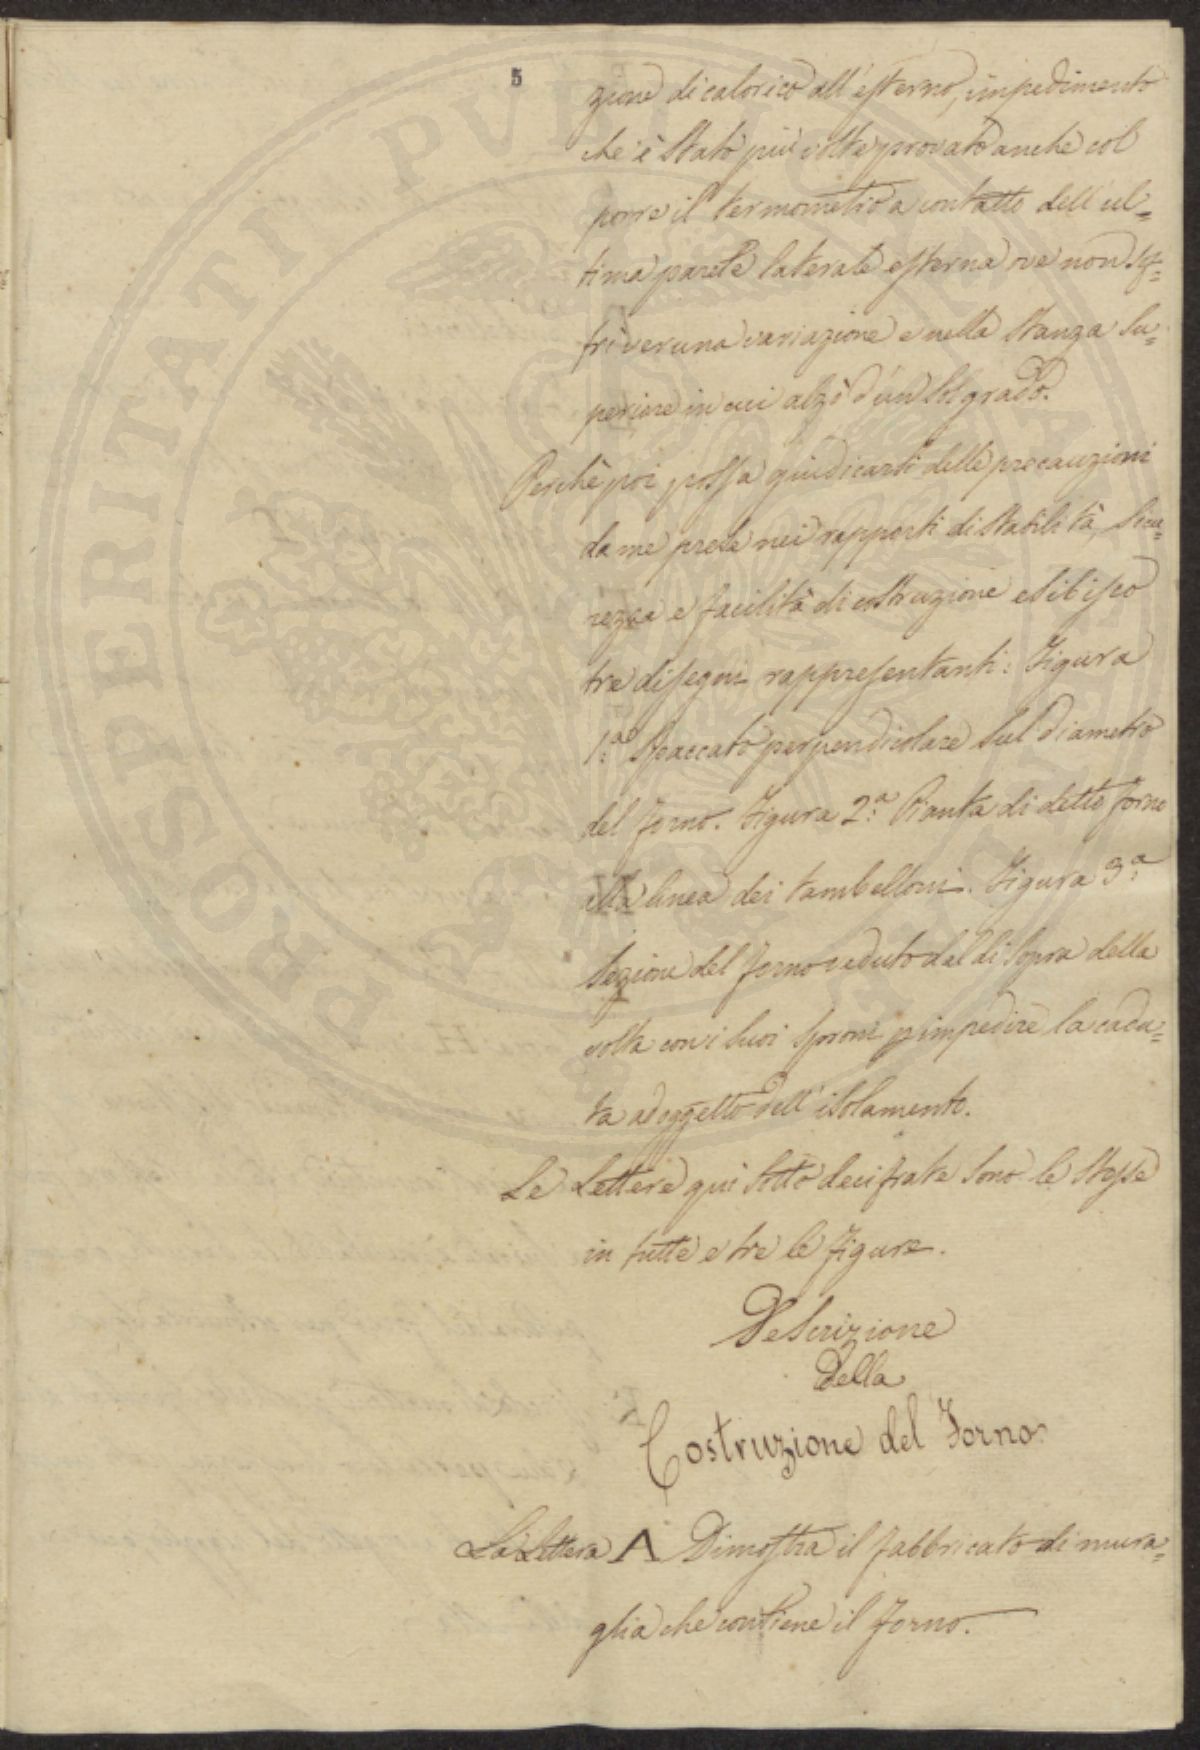 5
zione di calorico all'esterno, impedimento
che è stato più volte provato anche col
porre il termometro a contatto dell'ul=
tima parete laterale esterna ove non sof=
frì veruna variazione e nella stanza su=
periore in cui alzò d'un sol grado.
Perchè poi possa giudicarsi delle precauzioni
da me prese nei rapporti di stabilità, sicu=
rezza e facilità di costruzione esibisco
tre disegni rappresentanti: Figura
1.a Spaccato perpendicolare sul diametro
del forno. Figura 2.a Pianta di detto forno
alla linea dei tambelloni. Figura 3.a
Sezione del forno veduto dal di sopra della
volta con i suoi sproni p impedire la cadu=
ta ad oggetto dell'isolamento.
Le Lettere qui sotto decifrate sono le stesse
in tutte e tre le figure.
Descrizione
della
Costruzione del Forno.
La Lettera A Dimostra il fabbricato di mura=
glia che contiene il forno.
PROSPERITATI PUBLICAE